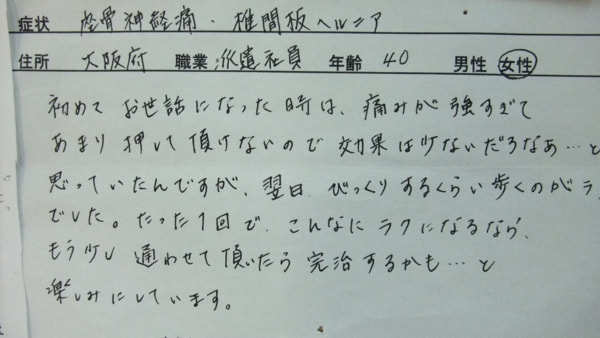 症状 坐骨神経痛・椎間板ヘルニア
住所 大阪府 職業 派遣社員 年齢 40 男性 女性
初めて お世話になった時は、痛みが強すぎて
あまり押して頂けないので効果は少ないだろなあ…と
思っていたんですが、翌日、びっくりするくらい歩くのがラ
でした。たった1回で、こんなにラクになるなら、
もう少し通わせて頂いたら完治するかも…と
楽しみにしています。